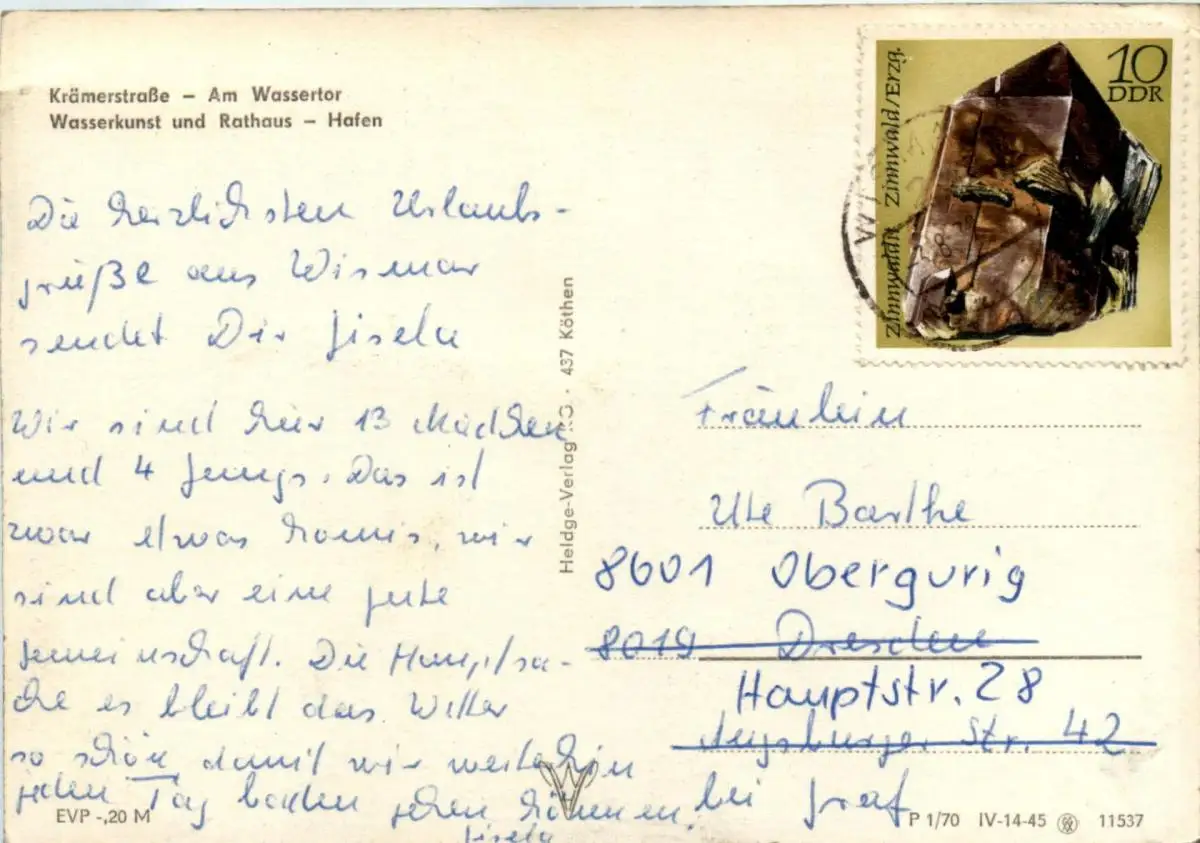 Krämerstraße – Am Wassertor
Wasserkunst und Rathaus – Hafen
Die herzlichsten Urlaubs-
grüße aus Wismar
sendet Dir Gisela
Wir sind hier 13 Mädchen
und 4 Jungs. Das ist
zwar etwas komis, wir
sind aber eine gute
Gemeinschaft. Die Hauptsa-
che es bleibt das Wetter
so schön damit wir weiterhin
jeden Tag baden gehen können.
Gisela
EVP -,20 M
Heldge-Verlag KG · 437 Köthen
10
DDR
Zinnwaldit Zinnwald/Erzg.
Fräulein
Ute Barthe
8601 Obergurig
8019 Dresden
Hauptstr. 28
Augsburger Str. 42
bei Graf
P 1/70 IV-14-45 11537